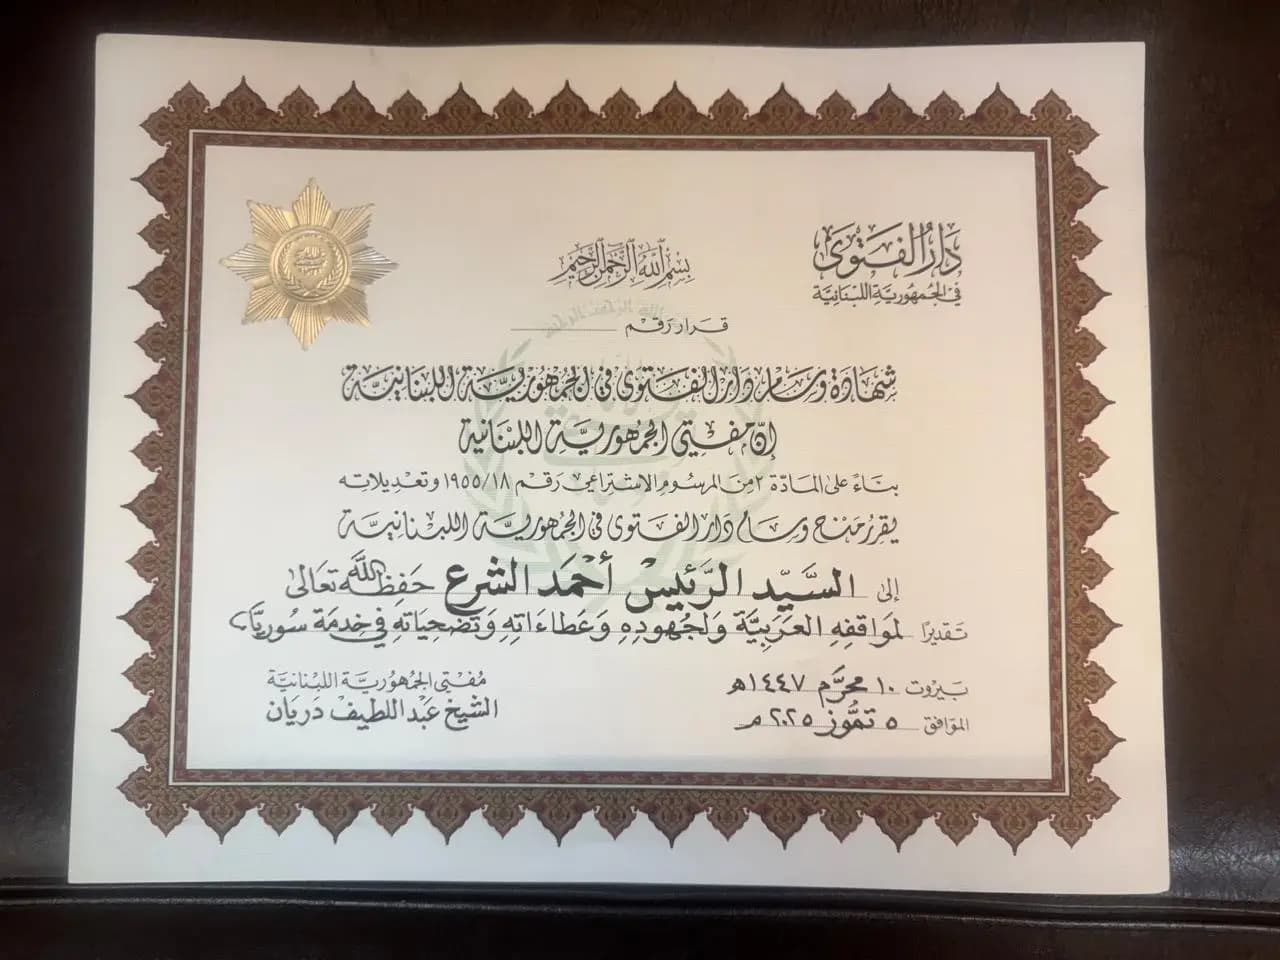 دار الفتوى
في الجمهورية اللبنانية
بسم الله الرحمن الرحيم
قرار رقم
شهادة وسام دار الفتوى في الجمهورية اللبنانية
إنّ مفتي الجمهورية اللبنانية
بناءً على المادّة ٢ من المرسوم الاشتراعي رقم ١٩٥٥/١٨ وتعديلاته
يقرر منح وسام دار الفتوى في الجمهورية اللبنانية
إلى السَّيّد الرَّئيسْ أحمَد الشرع حَفِظَهُ الله تعَالى
تَقديرًا لموَاقفِهِ العَرَبيَّة وَلجُهودِهِ وَعَطاءَاتِهِ وَتَضحِيَاتِهِ فيْ خِدمَة سُوريَّا
بيروت ١٠ محرَّم ١٤٤٧هـ
الموافق ٥ تمُّوز ٢٠٢٥م
مُفتي الجمهُوريَّة اللبنانيَّة
الشيخ عَبد اللطيف دَريَان